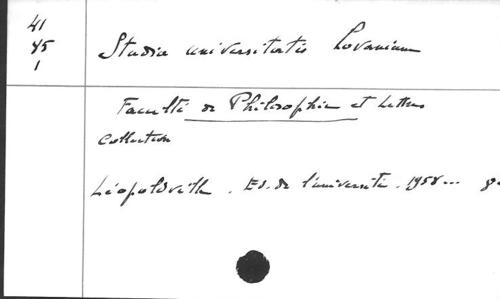 41
85
1
Studia universitatis Lovanium
Faculté de Philosophie et Lettres
Collection
Léopoldville. Ed. de l'université. 1958...